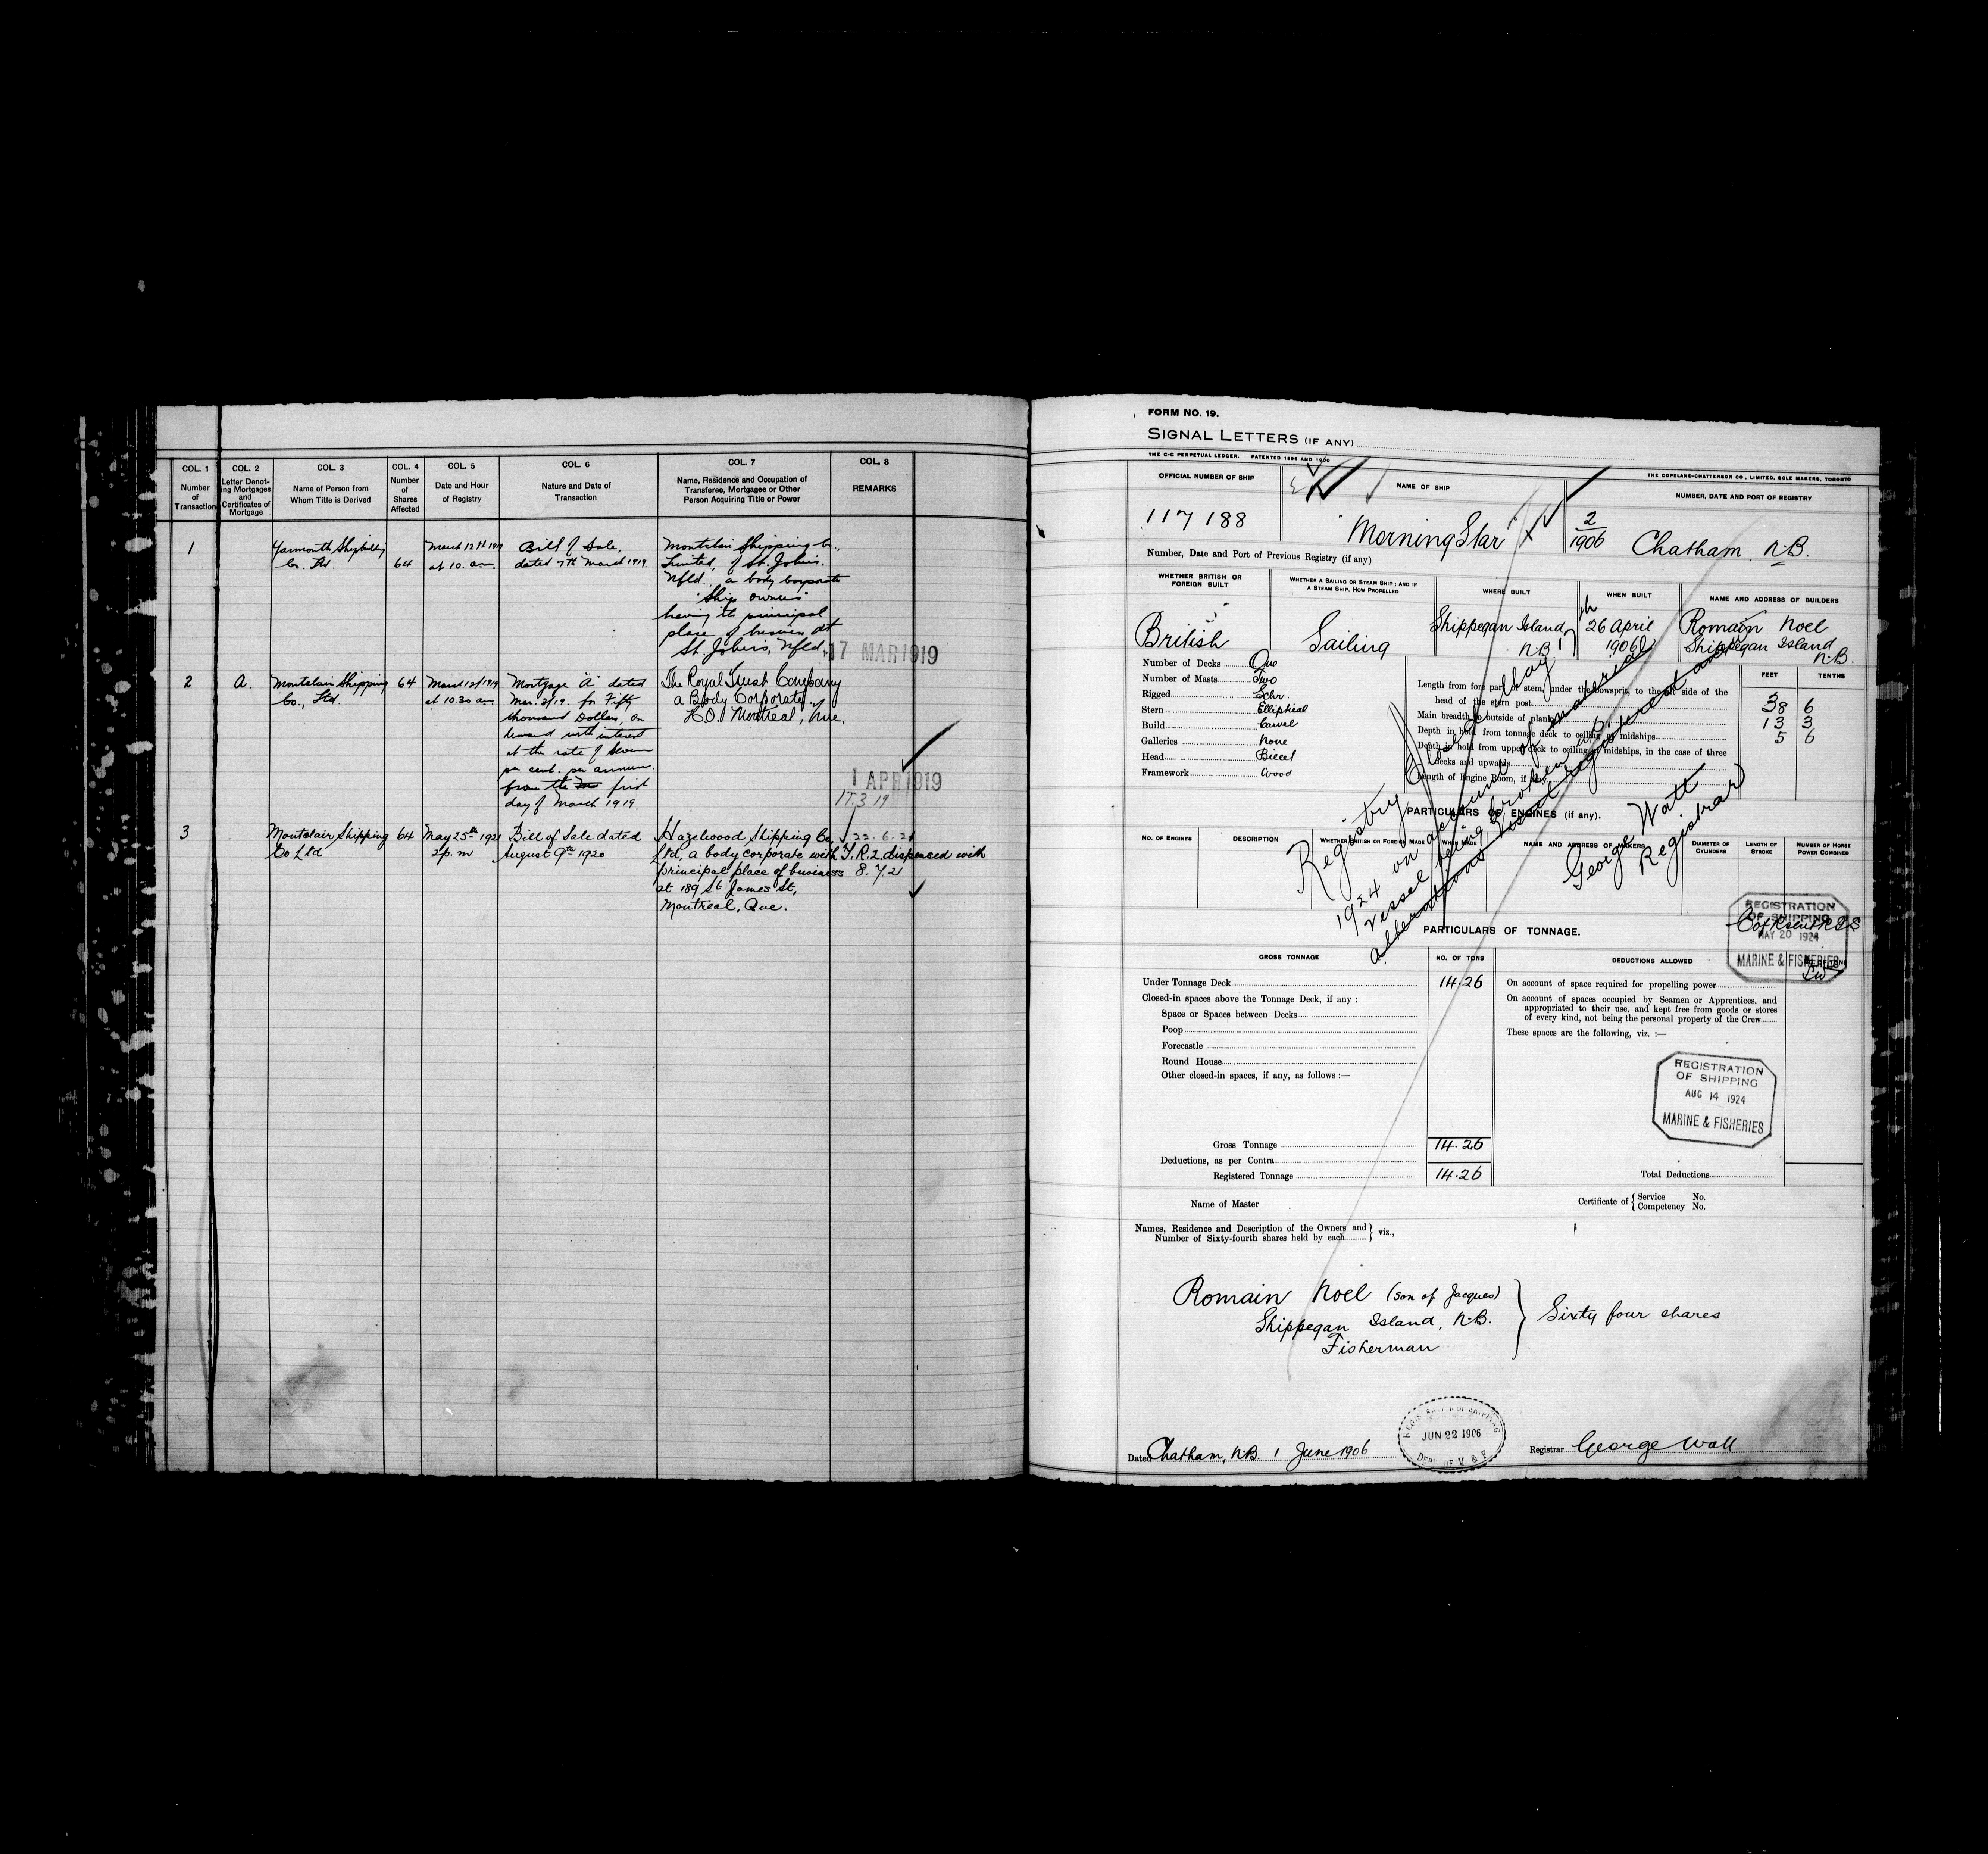 COL. 1 COL. 2 COL. 3 COL. 4 COL. 5 COL. 6 COL. 7 COL. 8
Number of Transaction
Letter Denoting Mortgages and Certificates of Mortgage
Name of Person from Whom Title is Derived
Number of Shares Affected
Date and Hour of Registry
Nature and Date of Transaction
Name, Residence and Occupation of Transferee, Mortgagee or Other Person Acquiring Title or Power
REMARKS
1
Yarmouth Shipbldg
Co. Ltd.
64
March 12th 1919
at 10. am.
Bill of Sale,
dated 7th March 1919.
Montclair Shipping Co.,
Limited, of St. John's.
Nfld., a body corporate
"Ship owners"
having its principal
place of business at
St. John's, Nfld.
17 MAR 1919
2
A.
Montclair Shipping
Co., Ltd.
64
March 12/1919
at 10.30 am.
Mortgage "A" dated
Mar. 3/19. for Fifty
thousand Dollars, on
demand with interest
at the rate of seven
per cent. per annum.
from the first
day of March 1919.
The Royal Trust Company
a Body Corporate.
H.O. Montreal, Que.
1 APR 1919
17.3 19
3
Montclair Shipping
Co Ltd
64
May 25th 1921
2 p.m
Bill of Sale dated
August 9th 1920
Hazelwood Shipping Co
Ltd, a body corporate with
principal place of business
at 189 St James St,
Montreal, Que.
22.6.21
T.R.2. dispensed with
8.7.21
FORM NO. 19.
SIGNAL LETTERS (IF ANY)
THE C-C PERPETUAL LEDGER. PATENTED 1896 AND 1900
THE COPELAND-CHATTERSON CO., LIMITED, SOLE MAKERS, TORONTO
OFFICIAL NUMBER OF SHIP
NAME OF SHIP
NUMBER, DATE AND PORT OF REGISTRY
117188
"Morning Star"
2/1906 Chatham. N.B.
Number, Date and Port of Previous Registry (if any)
WHETHER BRITISH OR FOREIGN BUILT
WHETHER A SAILING OR STEAM SHIP; AND IF A STEAM SHIP, HOW PROPELLED
WHERE BUILT
WHEN BUILT
NAME AND ADDRESS OF BUILDERS
British
Sailing
Shippegan Island,
N.B.
26 April
1906
Romain Noel
Shippegan Island
N.B.
Number of Decks One
Number of Masts Two
Rigged Schr.
Stern Elliptical
Build Carvel
Galleries None
Head Billet
Framework Wood
FEET TENTHS
Length from fore part of stem, under the bowsprit, to the aft side of the
head of the stern post 38 6
Main breadth to outside of plank 13 3
Depth in hold from tonnage deck to ceiling at midships 5 6
Depth in hold from upper deck to ceiling at midships, in the case of three
decks and upwards
Length of Engine Room, if any
Registry closed
May
1924 on account of
vessel being broken up.
George Watt
Registrar
PARTICULARS OF ENGINES (if any).
NO. OF ENGINES
DESCRIPTION
WHETHER BRITISH OR FOREIGN MADE
WHEN MADE
NAME AND ADDRESS OF MAKERS
DIAMETER OF CYLINDERS
LENGTH OF STROKE
NUMBER OF HORSE POWER COMBINED
REGISTRATION
OF SHIPPING
MAY 20 1924
MARINE & FISHERIES
PARTICULARS OF TONNAGE.
GROSS TONNAGE
NO. OF TONS
DEDUCTIONS ALLOWED
Under Tonnage Deck 14.26
Closed-in spaces above the Tonnage Deck, if any :
Space or Spaces between Decks
Poop
Forecastle
Round House
Other closed-in spaces, if any, as follows :—
Gross Tonnage 14.26
Deductions, as per Contra
Registered Tonnage 14.26
On account of space required for propelling power
On account of spaces occupied by Seamen or Apprentices, and
appropriated to their use, and kept free from goods or stores
of every kind, not being the personal property of the Crew
These spaces are the following, viz. :—
REGISTRATION
OF SHIPPING
AUG 14 1924
MARINE & FISHERIES
Total Deductions
Name of Master
Certificate of { Service No.
Competency No.
Names, Residence and Description of the Owners and
Number of Sixty-fourth shares held by each } viz.,
Romain Noel (son of Jacques)
Shippegan Island, N.B.
Fisherman
Sixty four shares
Dated Chatham, N.B. 1 June 1906
JUN 22 1906
Registrar George Watt